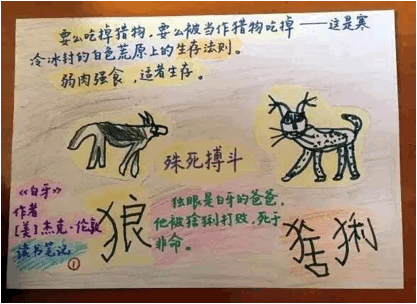 要么吃掉猎物，要么被当作猎物吃掉——这是寒
冷冰封的白色荒原上的生存法则。
弱肉强食，适者生存。
殊死搏斗
《白牙》
作者
[美]杰克·伦敦
读书笔记
①
狼
独眼是白牙的爸爸，
他被猞猁打败，死于
非命。
猞猁